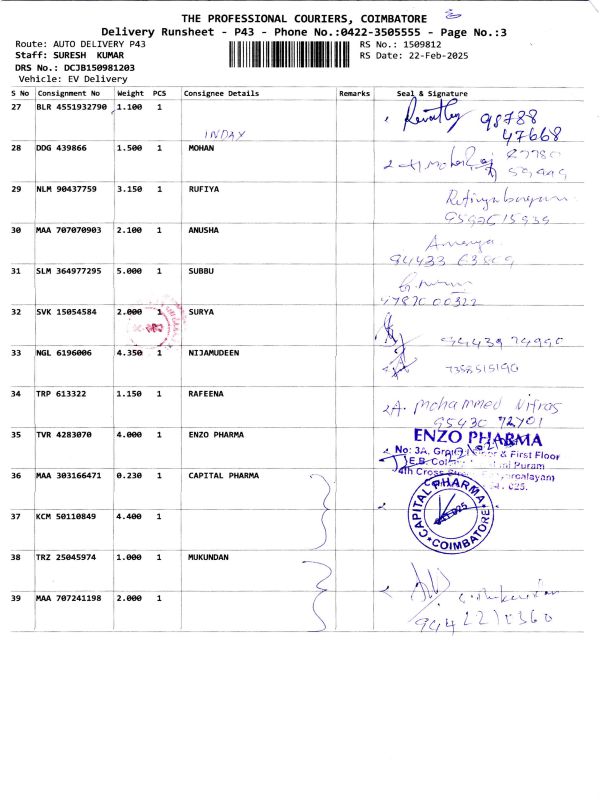 THE PROFESSIONAL COURIERS, COIMBATORE
Delivery Runsheet - P43 - Phone No.:0422-3505555 - Page No.:3
Route: AUTO DELIVERY P43 RS No.: 1509812
Staff: SURESH KUMAR RS Date: 22-Feb-2025
DRS No.: DCJB150981203
Vehicle: EV Delivery
S No Consignment No Weight PCS Consignee Details Remarks Seal & Signature
27 BLR 4551932790 1.100 1 98788
47668
28 DDG 439866 1.500 1 MOHAN
29 NLM 90437759 3.150 1 RUFIYA
30 MAA 707070903 2.100 1 ANUSHA
94433
31 SLM 364977295 5.000 1 SUBBU
32 SVK 15054584 2.000 1 SURYA
33 NGL 6196006 4.350 1 NIJAMUDEEN
7358515190
34 TRP 613322 1.150 1 RAFEENA
A. Mohammed
95430 92701
35 TVR 4283070 4.000 1 ENZO PHARMA
ENZO PHARMA
No: 3A, & First Floor
E.B. Puram
4th Cross
025.
36 MAA 303166471 0.230 1 CAPITAL PHARMA
CAPITAL PHARMA
COIMBATORE
37 KCM 50110849 4.400 1
38 TRZ 25045974 1.000 1 MUKUNDAN
39 MAA 707241198 2.000 1